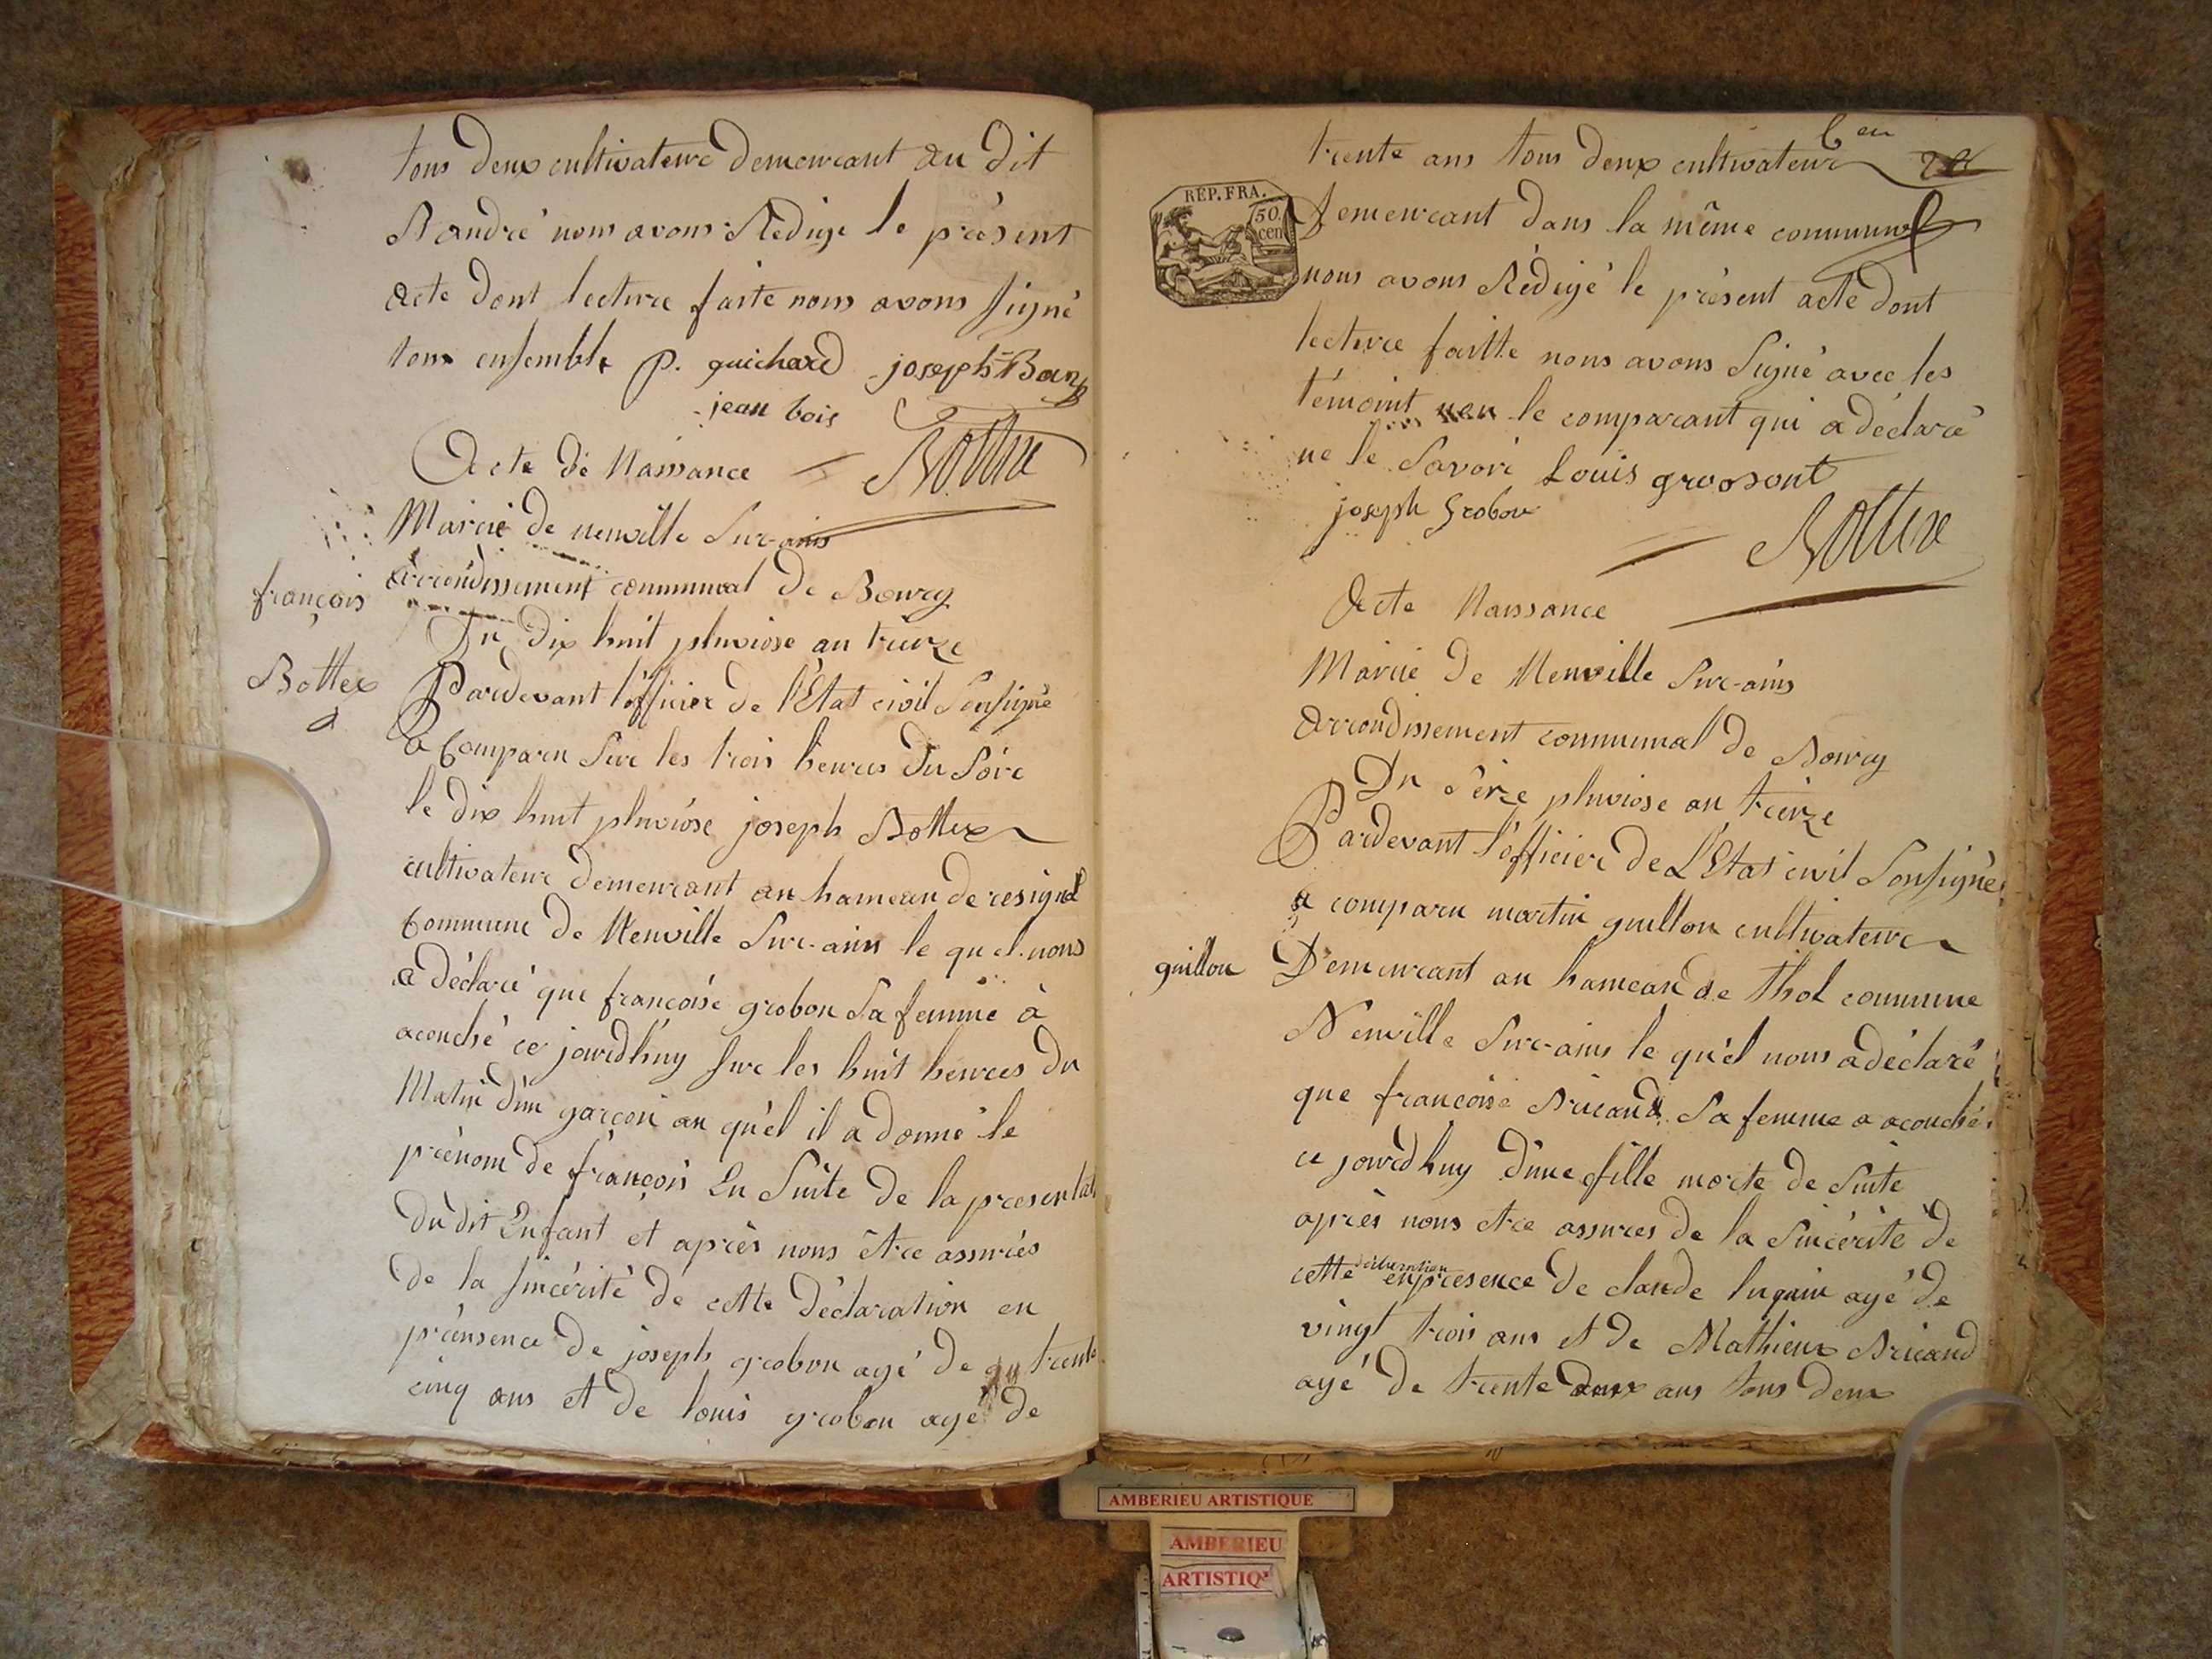 tous deux cultivateurs demeurant au dit
St andré nous avons Rédigé le présent
Acte dont lecture faite nous avons signé
tous ensemble P. guichard joseph
jean bois
Acte de Naissance
Mairie de neuville Sur-ains
Arrondissement communal de Bourg
françois
Du dix huit pluviose an treize
Bottex
Pardevant l'officier de l'Etat civil Sousigné
a Comparu Sur les trois heures du Soir
le dix huit pluviose joseph Bottex
cultivateur demeurant au hameau de resignel
Commune de Neuville Sur-ains le quel nous
a Déclaré que francoise grobon Sa femme à
acouché ce jourdhuy sur les huit heures du
Matin d'un garçon au quel il a donné le
prénom de françois En Suite de la presentat
du dit Enfant et après nous être assurés
de la sincérité de cette Déclaration en
présence de joseph grobon agé de trente
cinq ans et de louis grobon agé de
trente ans tous deux cultivateurs
REP. FRA.
50. cen
demeurant dans la même commune
nous avons Rédigé le présent acte dont
lecture faitte nous avons Signé avec les
témoint le comparant qui a déclaré
ne le Savoir Louis groosont
joseph Grobon
Acte Naissance
Mairie de Neuville Sur-ains
Arrondissement communal de Bourg
Du Seize pluviose an treize
Pardevant l'officier de L'Etat civil Sousigné
a comparu martin guillon cultivateur
guillon
Demeurant au hameau de thol commune
Neuville Sur-ains le quel nous a déclaré
que francoise Bricand Sa femme a acouché
ce jourdhuy d'une fille morte de Suite
après nous etre assures de la Sincérité de
cette déclaration en presence de claude luquin agé de
vingt trois ans et de Mathieux Bricand
agé de trente deux ans tous deux
AMBERIEU ARTISTIQUE
AMBERIEU
ARTISTIQ